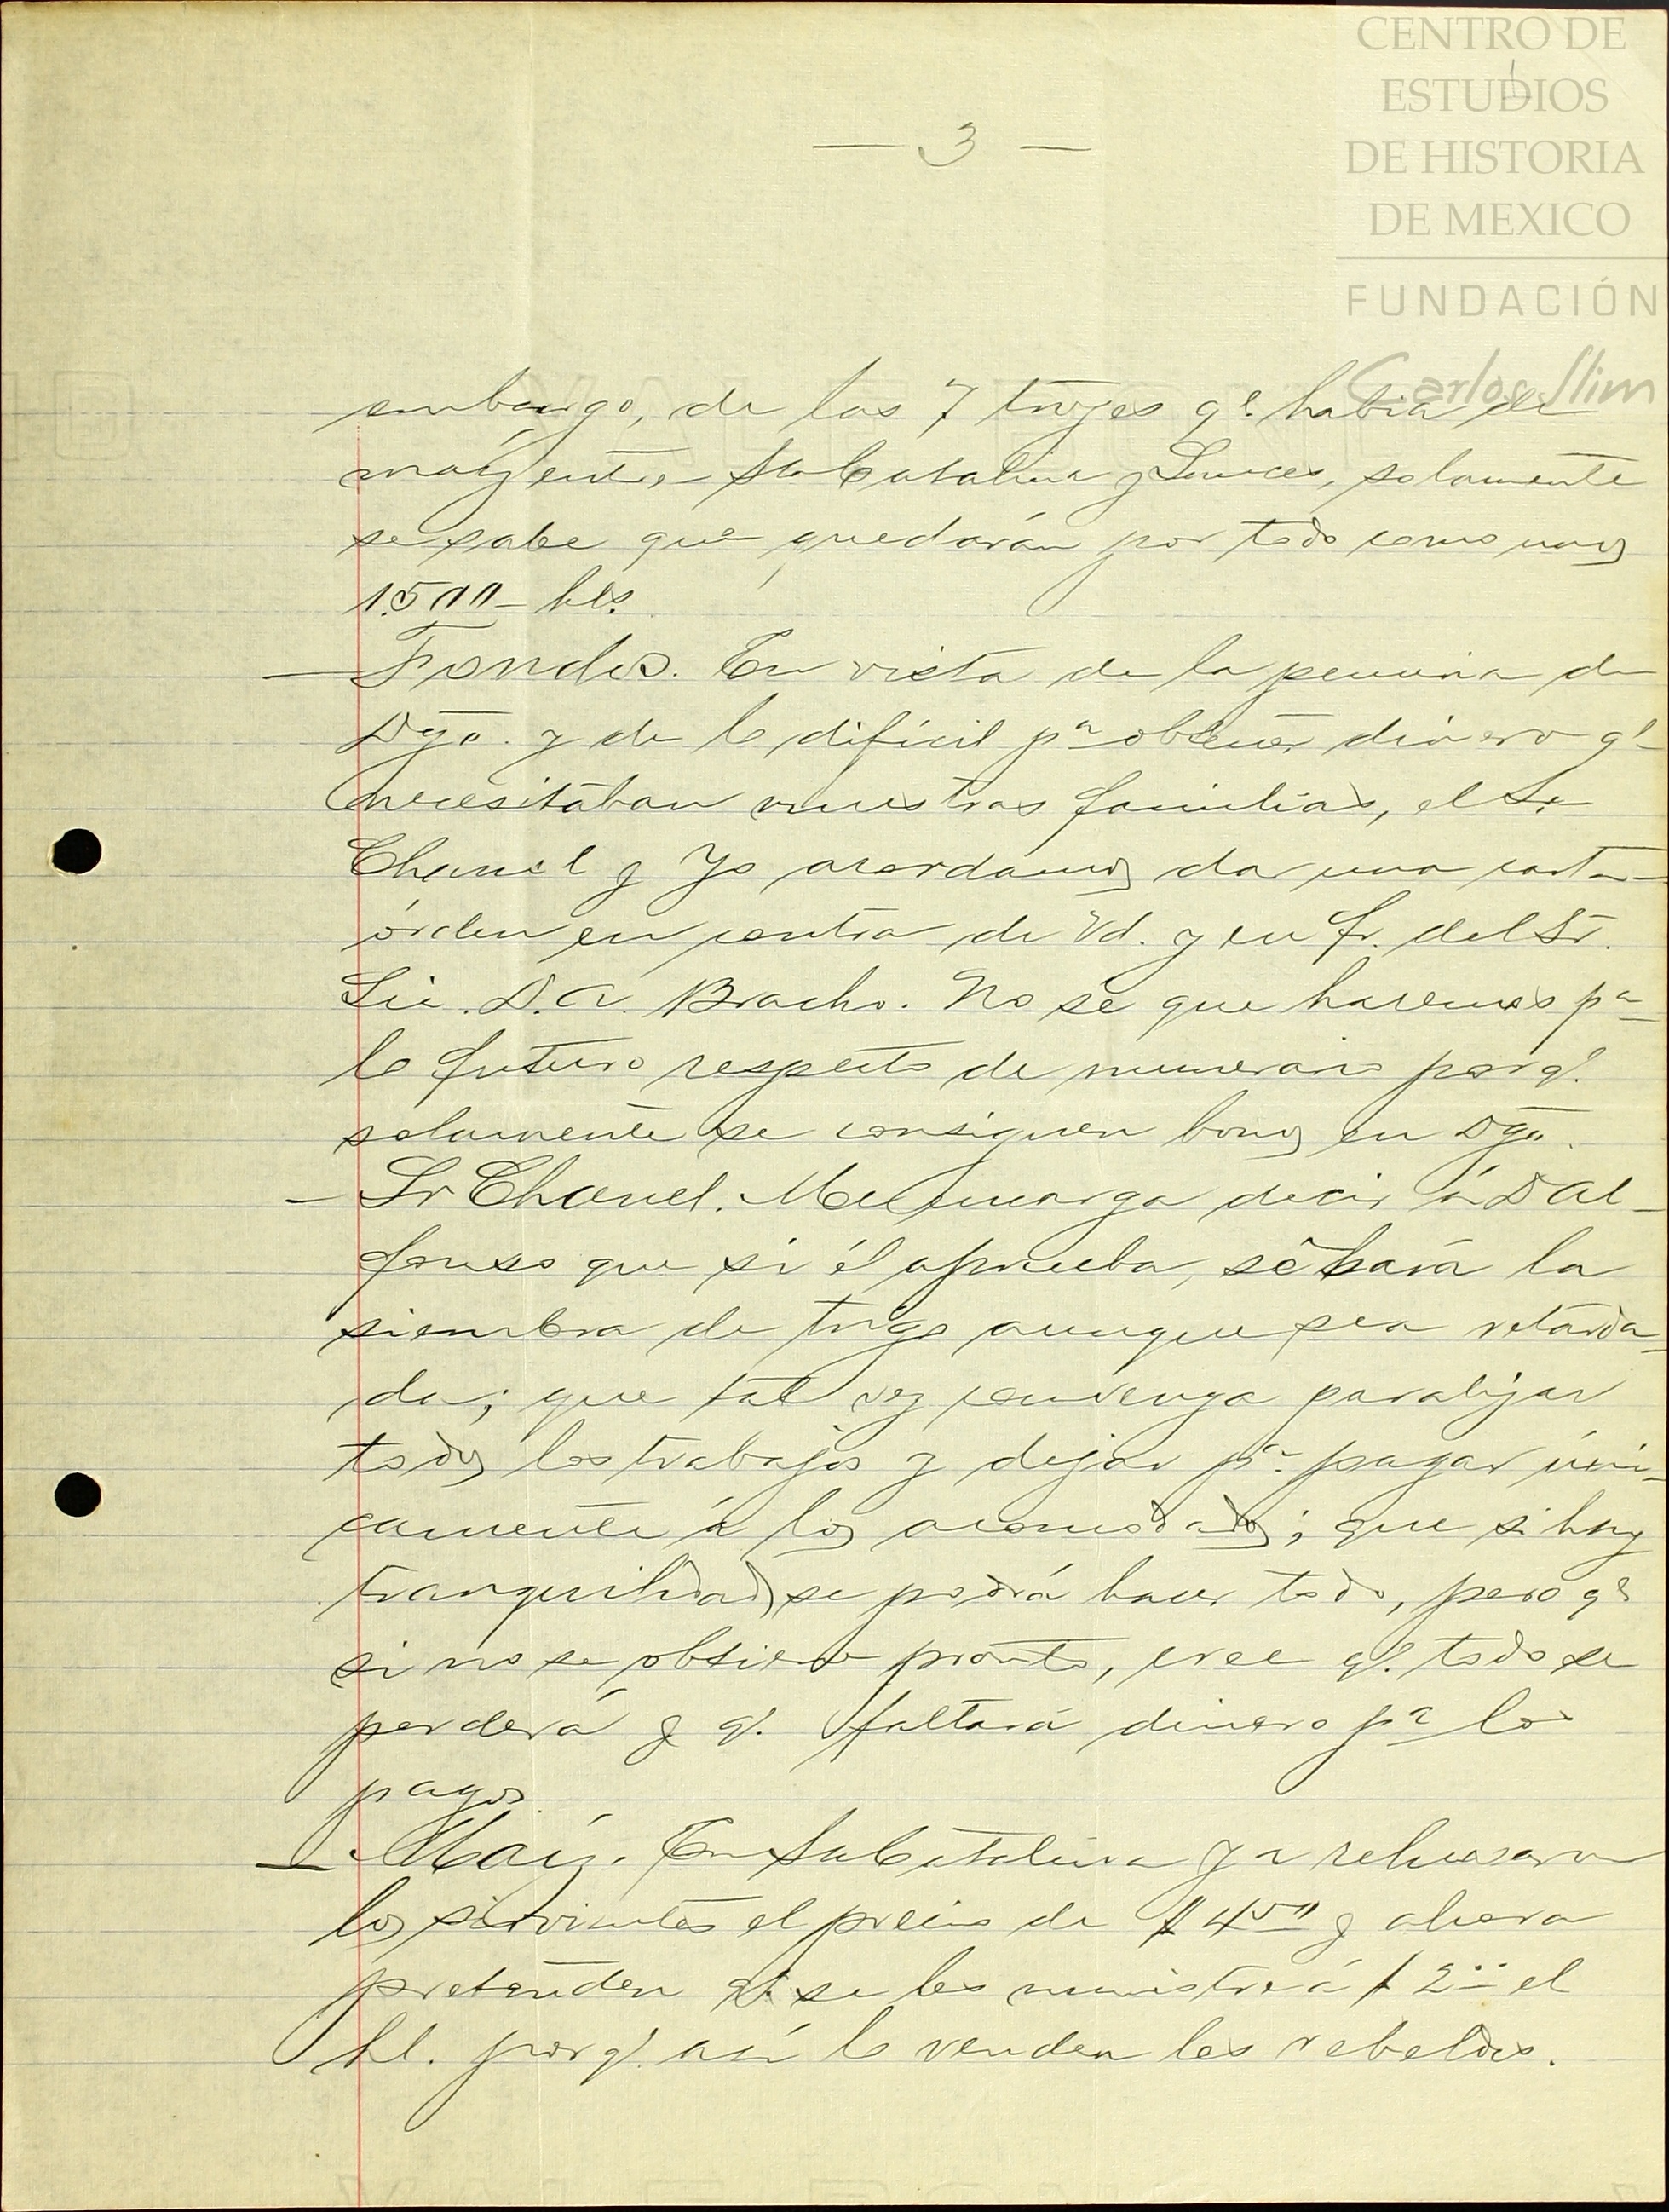 CENTRO DE
ESTUDIOS
DE HISTORIA
DE MEXICO
FUNDACIÓN
Carlos Slim
— 3 —
embargo, de las 7 trojes qe. habia de
maíz entre Sta Catalina y Sauces, solamente
se sabe que quedarán por todo como unos
1.500 – hls.
— Fondos. En vista de la penuria de
Dgo. y de lo dificil pa obtener dinero qe
necesitaban nuestras familias, el Sr
Chanel y Yo acordamos dar una carta-
órden en contra de Vd. y en fr. del Sr.
Lic. D. A. Bracho. No sé que haremos pa
lo futuro respecto de numerario porq.
solamente se consiguen bonos en Dgo.
— Sr Chanel. Me encarga decir á D Al-
fonso que si él aprueba, se hará la
siembra de trigo aunque sea retarda-
da; que tal vez convenga paralizar
todos los trabajos y dejar pa. pagar úni-
camente á los acomodados; que si hay
tranquilidad se podrá hacer todo, pero qe
si no se obtiene pronto, cree q. todo se
perderá y q. faltará dinero pa los
pagos.
— Maíz. En Sta Catalina ya rehusaron
los sirvientes el precio de $ 4.00 y ahora
pretenden q. se les ministre á $ 2.. el
hl. porq. así lo venden los rebeldes.